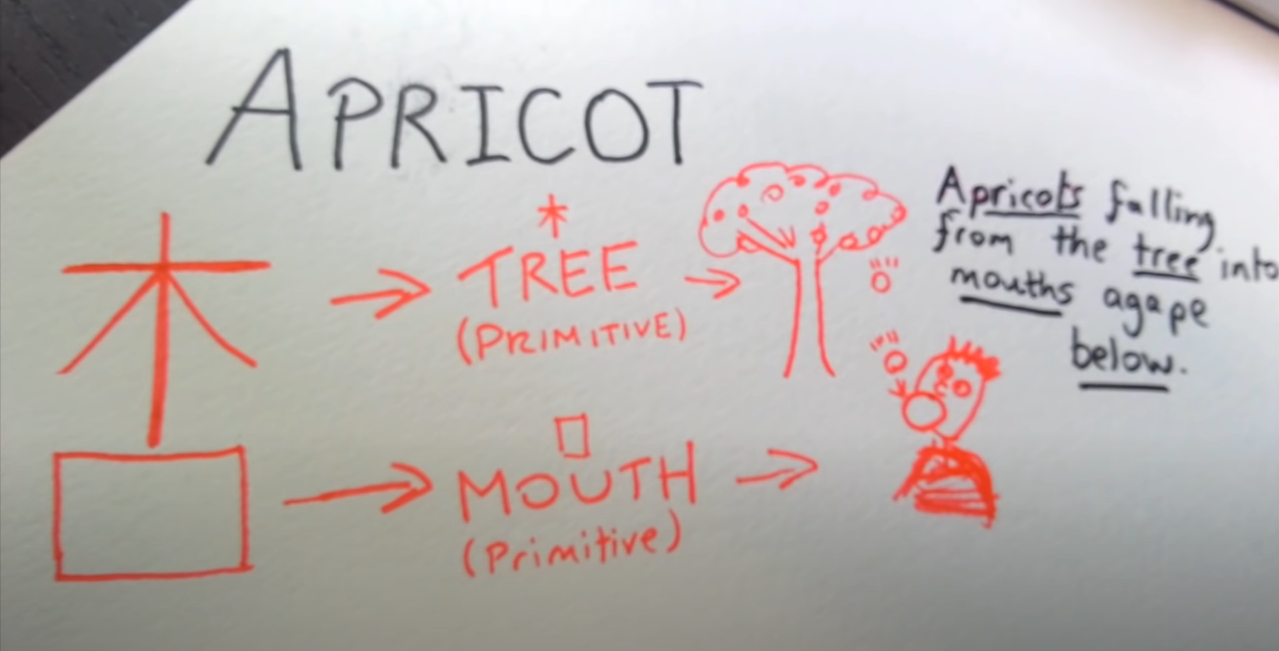 APRICOT
木
口
木
TREE
(PRIMITIVE)
口
MOUTH
(Primitive)
Apricots falling
from the tree into
mouths agape
below.